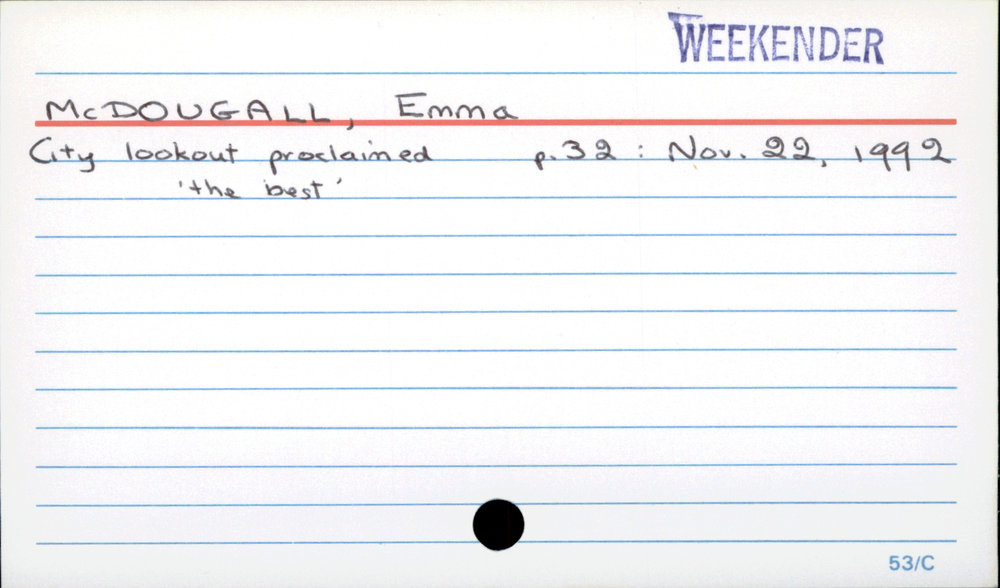 WEEKENDER
McDOUGALL, Emma
City lookout proclaimed p.32 : Nov. 22, 1992
'the best'
53/C